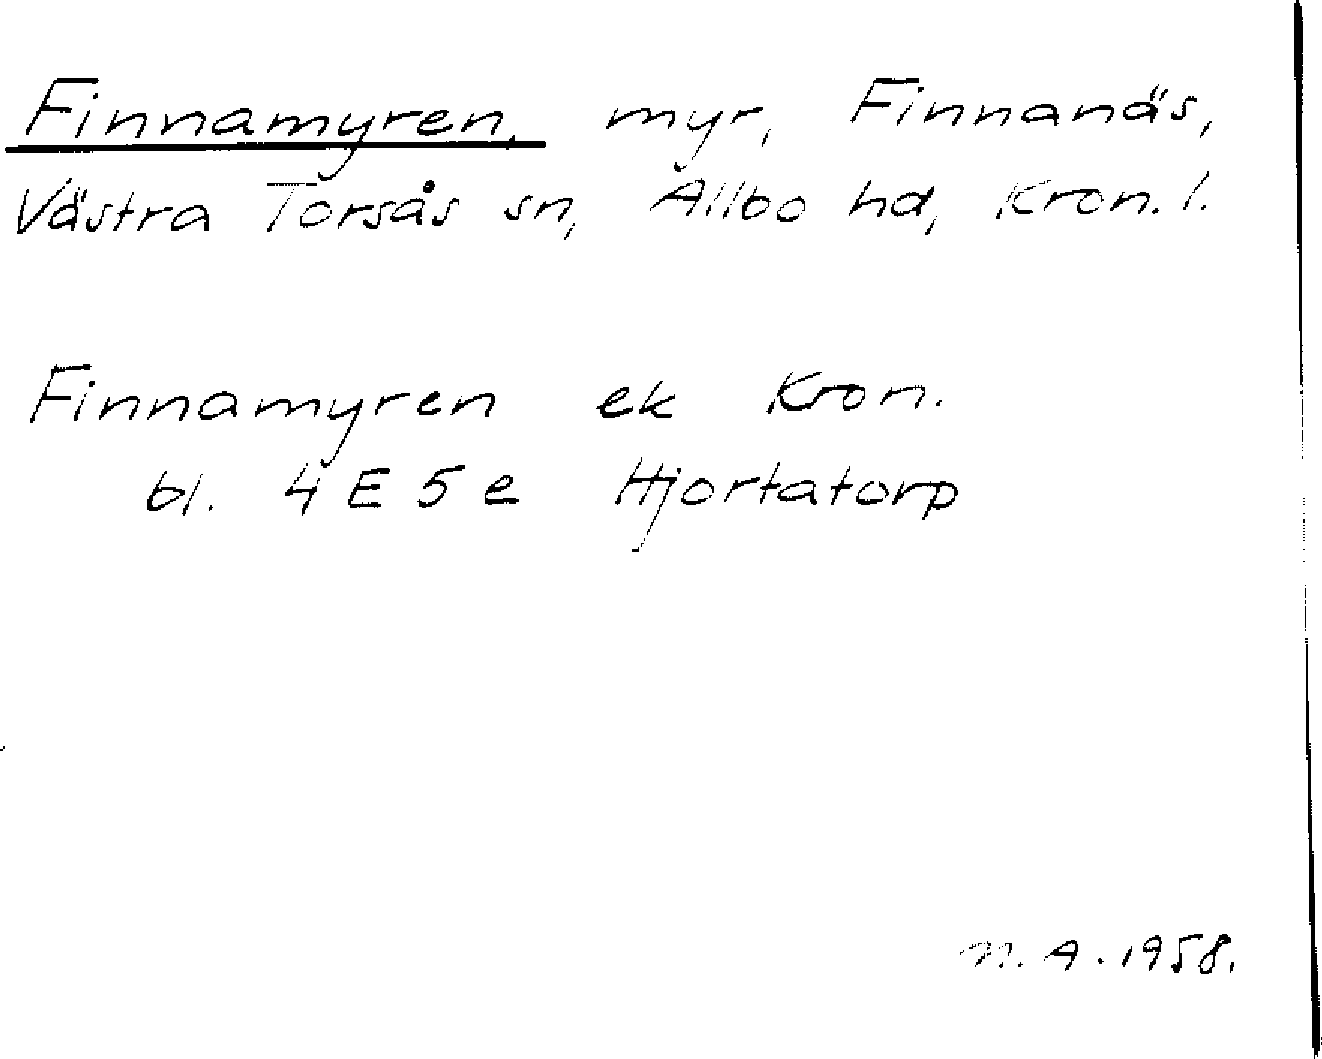 Finnamyren, myr, Finnanäs,
Västra Torsås sn, Allbo hd, Kron. l.
Finnamyren ek Kron.
bl. 4 E 5 e Hjortatorp
M. A. 1958.